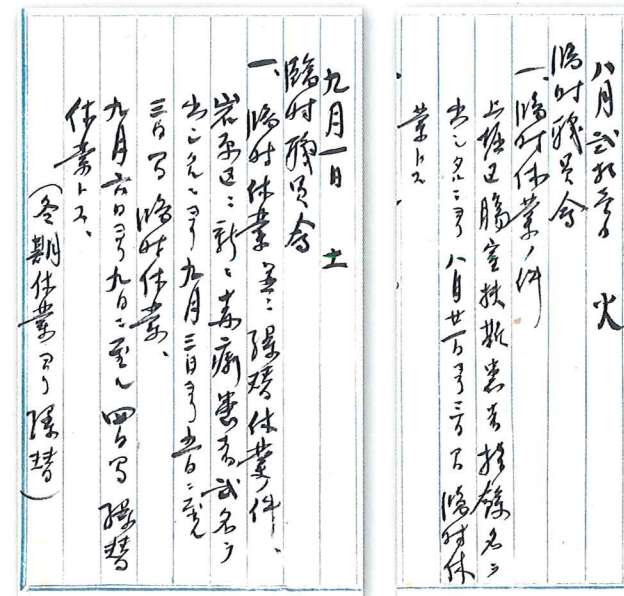 八月弐拾壱日　火
臨時職員会
一、臨時休業ノ件
上堀区腸窒扶斯患者拾餘名ヲ
出シタルニヨリ八月廿一日ヨリ三日間臨時休
業トス
九月一日　土
臨時職員会
一、臨時休業並ニ繰替休業ノ件、
岩原区ニ新ニ赤痢患者弐名ヲ
出シタルニヨリ九月三日ヨリ五日ニ至ル
三日間臨時休業、
九月六日ヨリ九日ニ至ル四日間繰替
休業トス、
（冬期休業ヨリ繰替）